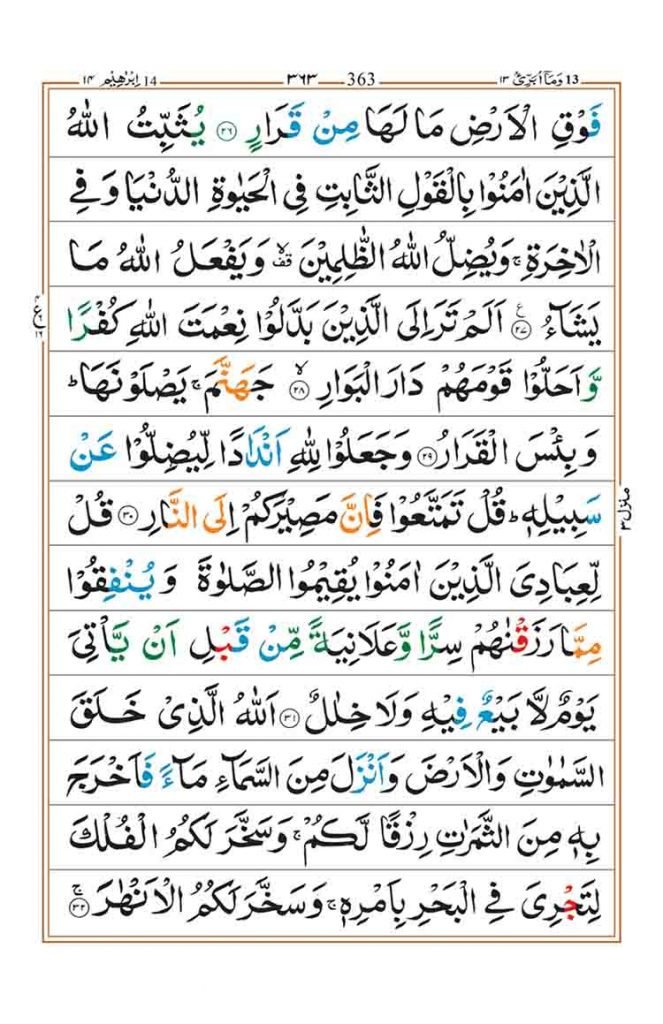 ابرٰهيم 14 ١٤ ٣٦٣ 363 وما ابرئ 13 ١٣
فَوْقِ الْاَرْضِ مَا لَهَا مِنْ قَرَارٍ ﴿٢٦﴾ يُثَبِّتُ اللّٰهُ
الَّذِيْنَ اٰمَنُوْا بِالْقَوْلِ الثَّابِتِ فِي الْحَيٰوةِ الدُّنْيَا وَفِي
الْاٰخِرَةِ ۚ وَيُضِلُّ اللّٰهُ الظّٰلِمِيْنَ ۙ قف وَيَفْعَلُ اللّٰهُ مَا
يَشَآءُ ﴿٢٧﴾ ع اَلَمْ تَرَ اِلَى الَّذِيْنَ بَدَّلُوْا نِعْمَتَ اللّٰهِ كُفْرًا
وَّاَحَلُّوْا قَوْمَهُمْ دَارَ الْبَوَارِ ﴿٢٨﴾ ۙ جَهَنَّمَ ۚ يَصْلَوْنَهَا ؕ
وَبِئْسَ الْقَرَارُ ﴿٢٩﴾ وَجَعَلُوْا لِلّٰهِ اَنْدَادًا لِّيُضِلُّوْا عَنْ
سَبِيْلِهٖ ؕ قُلْ تَمَتَّعُوْا فَاِنَّ مَصِيْرَكُمْ اِلَى النَّارِ ﴿٣٠﴾ قُلْ
لِّعِبَادِيَ الَّذِيْنَ اٰمَنُوْا يُقِيْمُوا الصَّلٰوةَ وَيُنْفِقُوْا
مِمَّا رَزَقْنٰهُمْ سِرًّا وَّعَلَانِيَةً مِّنْ قَبْلِ اَنْ يَّاْتِيَ
يَوْمٌ لَّا بَيْعٌ فِيْهِ وَلَا خِلٰلٌ ﴿٣١﴾ اَللّٰهُ الَّذِيْ خَلَقَ
السَّمٰوٰتِ وَالْاَرْضَ وَاَنْزَلَ مِنَ السَّمَآءِ مَآءً فَاَخْرَجَ
بِهٖ مِنَ الثَّمَرٰتِ رِزْقًا لَّكُمْ ۚ وَسَخَّرَ لَكُمُ الْفُلْكَ
لِتَجْرِيَ فِي الْبَحْرِ بِاَمْرِهٖ ۚ وَسَخَّرَ لَكُمُ الْاَنْهٰرَ ﴿٣٢﴾ ۚ
منزل ٣